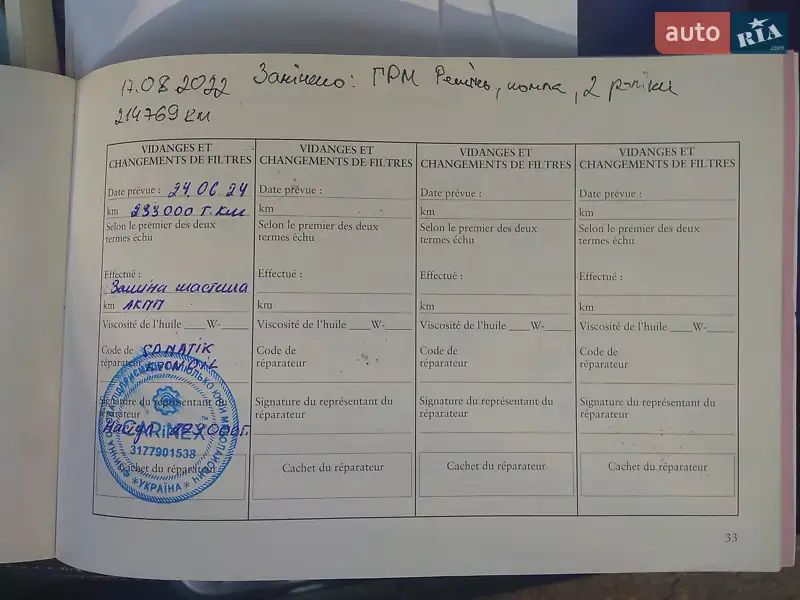 auto RIA.com
17.08 2022 Замінено: ГРМ Ремінь, помпа, 2 роліки
214769 км
VIDANGES ET CHANGEMENTS DE FILTRES
Date prévue : 29.06.24
km 233000 т.км
Selon le premier des deux termes échu
Effectué :
Заміна мастила
km АКПП
Viscosité de l'huile ____W-____
Code de réparateur
Signature du représentant du réparateur
CARiMEX™
3177901538
Cachet du réparateur
УКРАЇНА
VIDANGES ET CHANGEMENTS DE FILTRES
Date prévue :
km
Selon le premier des deux termes échu
Effectué :
km
Viscosité de l'huile ____W-____
Code de réparateur
Signature du représentant du réparateur
Cachet du réparateur
VIDANGES ET CHANGEMENTS DE FILTRES
Date prévue :
km
Selon le premier des deux termes échu
Effectué :
km
Viscosité de l'huile ____W-____
Code de réparateur
Signature du représentant du réparateur
Cachet du réparateur
VIDANGES ET CHANGEMENTS DE FILTRES
Date prévue :
km
Selon le premier des deux termes échu
Effectué :
km
Viscosité de l'huile ____W-____
Code de réparateur
Signature du représentant du réparateur
Cachet du réparateur
33